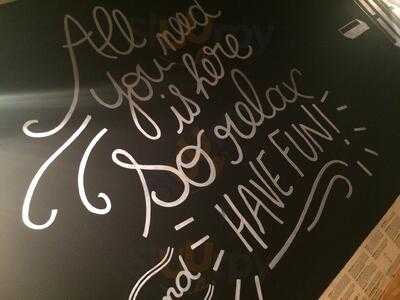 All need
you
is here
So relax
HAVE FUN!
nd